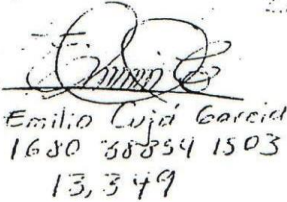 Emilio Cujá Garcia
1680 38854 1503
13,349